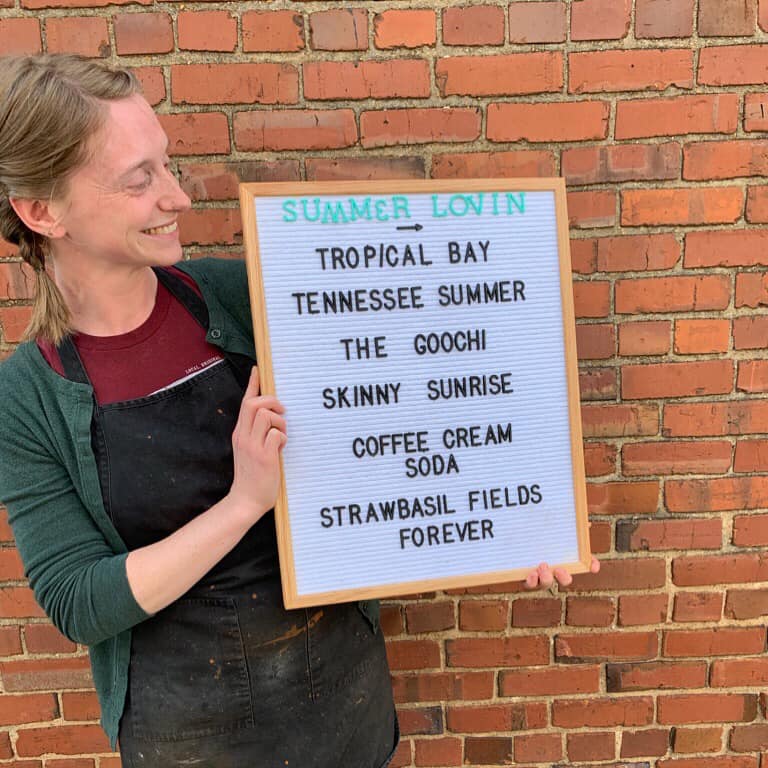 SUMMER LOVIN
→
TROPICAL BAY
TENNESSEE SUMMER
THE GOOCHI
SKINNY SUNRISE
COFFEE CREAM
SODA
STRAWBASIL FIELDS
FOREVER